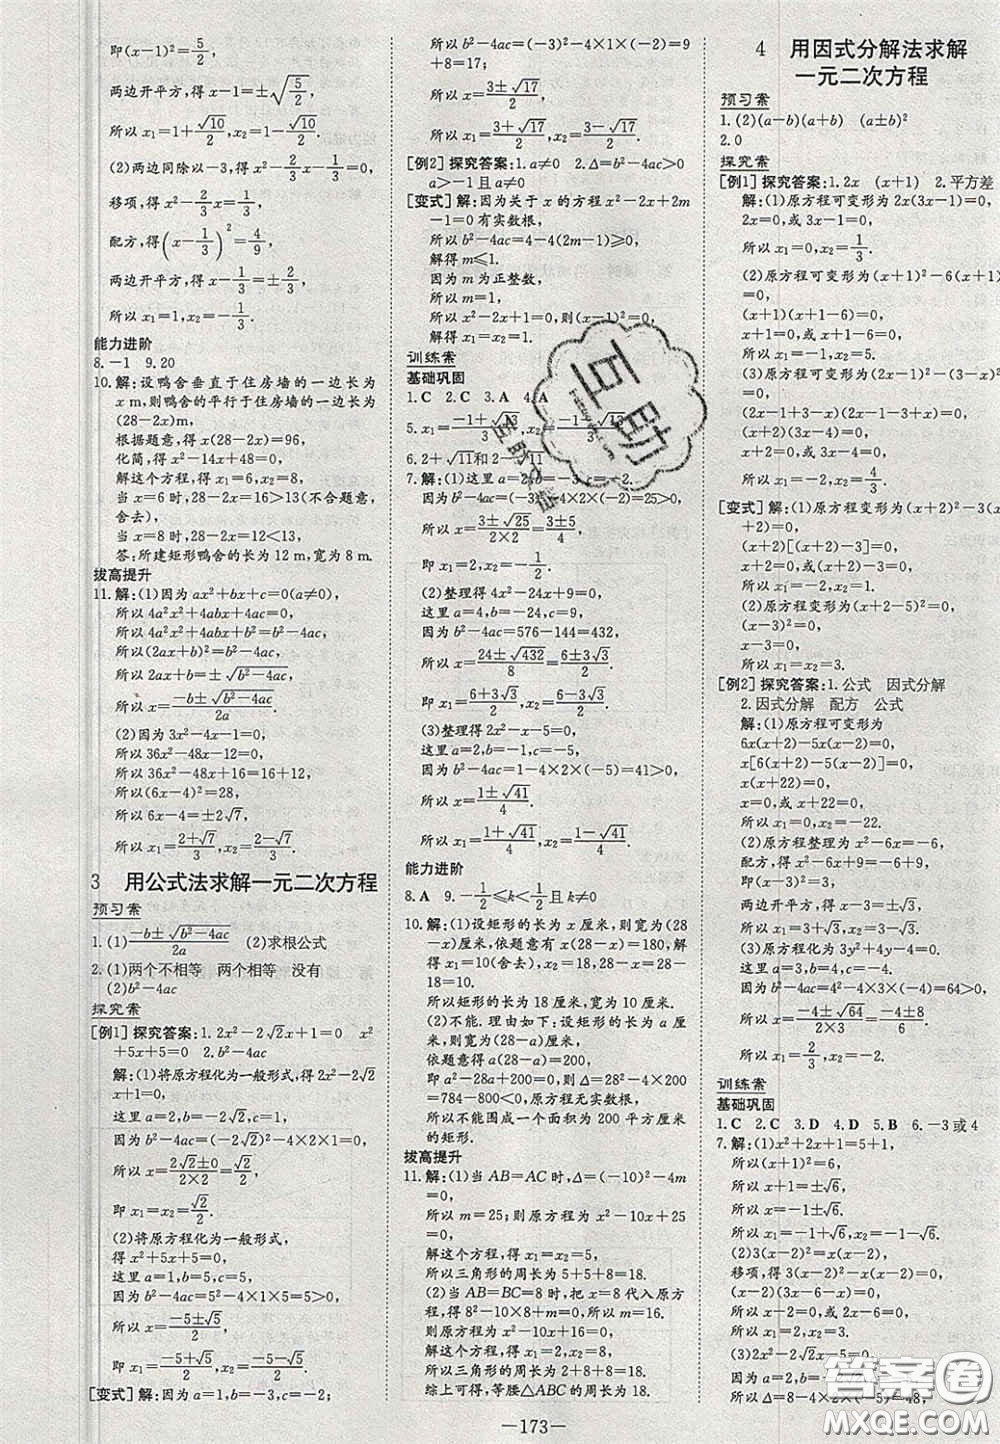 即(x-1)²=5/2,
两边开平方,得x-1=±√(5/2),
所以x₁=1+√10/2,x₂=1-√10/2.
(2)两边同除以-3,得x²-2/3x-1/3=0,
移项,得x²-2/3x=1/3,
配方,得(x-1/3)²=4/9,
两边开平方,得x-1/3=±2/3,
所以x₁=1,x₂=-1/3.
能力进阶
8.-1 9.20
10.解:设鸭舍垂直于住房墙的一边长为
x m,则鸭舍的平行于住房墙的一边长为
(28-2x)m,
根据题意,得x(28-2x)=96,
化简,得x²-14x+48=0,
解这个方程,得x₁=6,x₂=8,
当x=6时,28-2x=16>13(不合题意,
舍去),
当x=8时,28-2x=12<13,
答:所建矩形鸭舍的长为12 m,宽为8 m.
拔高提升
11.解:(1)因为ax²+bx+c=0(a≠0),
所以4a²x²+4abx+4ac=0,
所以4a²x²+4abx+b²=b²-4ac,
所以(2ax+b)²=b²-4ac,
所以2ax+b=±√(b²-4ac),
所以x=(-b±√(b²-4ac))/2a.
(2)因为3x²-4x-1=0,
所以36x²-48x-12=0,
所以36x²-48x+16=12+16,
所以(6x-4)²=28,
所以6x-4=±2√7,
所以x₁=(2+√7)/3,x₂=(2-√7)/3.
3 用公式法求解一元二次方程
预习案
1.(1)(-b±√(b²-4ac))/2a (2)求根公式
2.(1)两个不相等 两个相等 没有
(2)b²-4ac
探究案
[例1]探究答案:1.2x²-2√2x+1=0 x²
+√5x+5=0 2.b²-4ac
解:(1)将原方程化为一般形式,得2x²-2√2
x+1=0,
这里a=2,b=-2√2,c=1,
因为b²-4ac=(-2√2)²-4×2×1=0,
所以x=(2√2±0)/(2×2),
即x₁=x₂=√2/2.
(2)将原方程化为一般形式,
得x²+5x+5=0,
这里a=1,b=5,c=5,
因为b²-4ac=5²-4×1×5=5>0,
所以x=(-5±√5)/2,
即x₁=(-5+√5)/2,x₂=(-5-√5)/2.
[变式]解:因为a=1,b=-3,c=-2;
所以b²-4ac=(-3)²-4×1×(-2)=9
+8=17;
所以x=(3±√17)/2,
所以x₁=(3+√17)/2,x₂=(3-√17)/2.
[例2]探究答案:1.a≠0 2.Δ=b²-4ac>0
a>-1且a≠0
[变式]解:因为关于x的方程x²-2x+2m
-1=0有实数根,
所以b²-4ac=4-4(2m-1)≥0,
解得m≤1.
因为m为正整数,
所以m=1,
所以x²-2x+2m-1=0,则(x-1)²=0,
解得x₁=x₂=1.
训练案
基础巩固
1.C 2.C 3.A 4.A
5.x₁=(-1+√13)/3,x₂=
6.2+√11和2-√11
7.解:(1)这里a=2,b=-3,c=-2,
因为b²-4ac=(-3)²-4×2×(-2)=25>0,
所以x=(3±√25)/(2×2)=(3±5)/4,
即x₁=2,x₂=-1/2.
(2)整理得4x²-24x+9=0,
这里a=4,b=-24,c=9,
因为b²-4ac=576-144=432,
所以x=(24±√432)/8=(6±3√3)/2,
即x₁=(6+3√3)/2,x₂=(6-3√3)/2.
(3)整理得2x²-x-5=0,
这里a=2,b=-1,c=-5,
因为b²-4ac=1-4×2×(-5)=41>0,
所以x=(1±√41)/4.
所以x₁=(1+√41)/4,x₂=(1-√41)/4.
能力进阶
8.A 9.-1/2≤k<1/2
10.解:(1)设矩形的长为x厘米,则宽为(28-
x)厘米,依题意有x(28-x)=180,解得
x₁=10(舍去),x₂=18,28-x=28-
18=10.
所以矩形的长为18厘米,宽为10厘米.
(2)不能.理由如下:设矩形的长为a厘
米,则宽为(28-a)厘米,
依题意得a(28-a)=200,
即a²-28a+200=0,所以Δ=28²-4×200
=784-800<0,原方程无实数根,
所以不能围成一个面积为200平方厘米
的矩形.
拔高提升
11.解:(1)当AB=AC时,Δ=(-10)²-4m
=0,
所以m=25;则原方程为x²-10x+25
=0,
解这个方程,得x₁=x₂=5.
所以三角形的周长为5+5+8=18.
(2)当AB=BC=8时,把x=8代入原方
程,得8²-10×8+m=0,所以m=16.
则原方程为x²-10x+16=0,
解这个方程,得x₁=2,x₂=8,
所以三角形的周长为2+8+8=18.
综上可得,等腰△ABC的周长为18.
4 用因式分解法求解
一元二次方程
预习案
1.(2)(a-b)(a+b) (a±b)²
2.0
探究案
[例1]探究答案:1.2x (x+1) 2.平方差
解:(1)原方程可变形为2x(3x-1)=0,
2x=0,或3x-1=0,
所以x₁=0,x₂=1/3.
(2)原方程可变形为(x+1)²-6(x+1)
=0,
(x+1)(x+1-6)=0,
x+1=0,或x+1-6=0,
所以x₁=-1,x₂=5.
(3)原方程可变形为(2x-1)²-(3-x)²
=0,
(x+2)(3x-4)=0,
x+2=0,或3x-4=0,
所以x₁=-2,x₂=4/3.
[变式]解:(1)原方程变形为(x+2)²-3(x
+2)=0,
(x+2)[(x+2)-3]=0,
(x+2)(x-1)=0,
x+2=0,或x-1=0,
所以x₁=-2,x₂=1.
(2)原方程变形为x²-6x+9=0,
(x-3)²=0,
x-3=0,
所以x₁=x₂=3.
[例2]探究答案:1.公式 因式分解
2.因式分解 配方 公式
解:(1)原方程可变形为
6x(x+2)-5x(x-2)=0,
x[6(x+2)-5(x-2)]=0,
x=0,或x+22=0,
所以x₁=0,x₂=-22.
(2)原方程整理为x²-6x=-6,
配方,得x²-6x+9=-6+9,
即(x-3)²=3,
两边开平方,得x-3=±√3,
所以x₁=3+√3,x₂=3-√3.
(3)原方程化简为3y²+4y-4=0,
这里a=3,b=4,c=-4,
因为b²-4ac=4²-4×3×(-4)=64>0,
所以x=(-4±√64)/(2×3)=(-4±8)/6,
所以x₁=2/3,x₂=-2.
训练案
基础巩固
1.C 2.C 3.D 4.D 5.B 6.-3或4
7.解:(1)x²+2x+1=5+1,
所以(x+1)²=6,
所以x+1=±√6,
所以x₁=-1+√6,x₂=-1-√6.
(2)3(x-2)²=x(x-2),
移项,得3(x-2)²-x(x-2)=0,
(x-2)(3x-6-x)=0,
所以x-2=0或2x-6=0,
所以x₁=2,x₂=3.
(3)2x²-2√2x-5=0,
这里a=2,b=-2√2,c=-5,
所以Δ=8-4×2×(-5)=48,
—173—
互助
答案圈
MXQE.COM